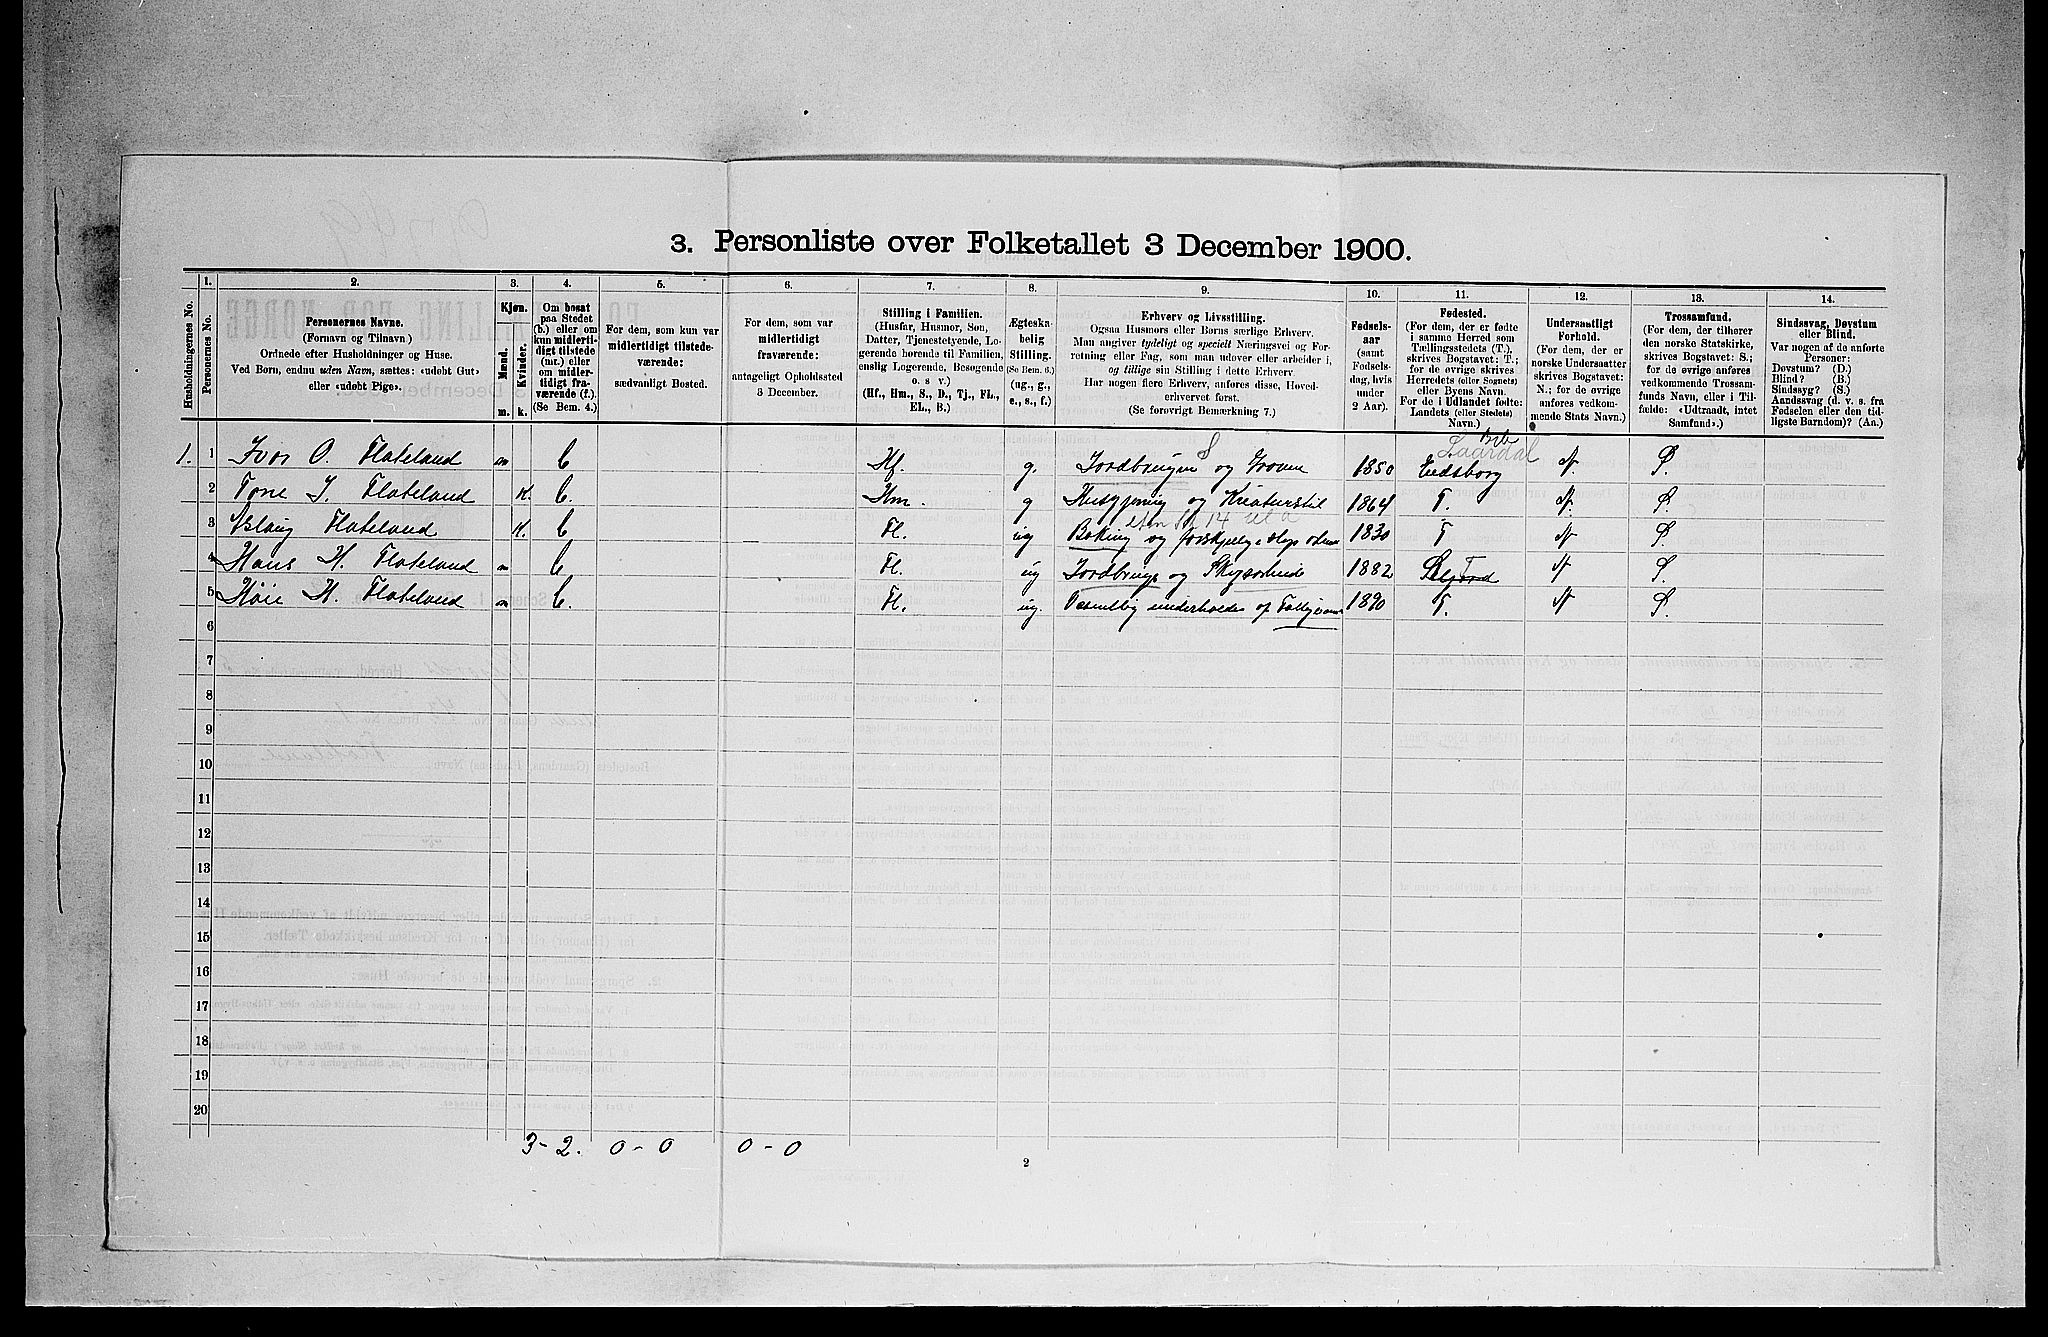 3. Personliste over Folketallet 3 December 1900.
Husholdningernes No.
1.
Personernes No.
2.
Personernes Navne.
(Fornavn og Tilnavn)
Ordnede efter Husholdninger og Huse.
Ved Børn, endnu uden Navn, sættes: «udøbt Gut»
eller «udøbt Pige».
3.
Kjøn.
Mænd.
Kvinder.
m.
k.
4.
Om bosat
paa Stedet
(b.) eller om
kun midlerti-
digt tilstede
(mt.) eller
om midler-
tidigt fra-
værende (f.).
(Se Bem. 4.)
5.
For dem, som kun var
midlertidigt tilstede-
værende:
sædvanligt Bosted.
6.
For dem, som var
midlertidigt
fraværende:
antageligt Opholdssted
3 December.
7.
Stilling i Familien.
(Husfar, Husmor, Søn,
Datter, Tjenestetyende, Lo-
gerende hørende til Familien,
enslig Logerende, Besøgende
o. s v.)
(Hf., Hm., S., D., Tj., FL.,
EL., B.)
8.
Ægteska-
belig
Stilling.
(Se Bem. 6.)
(ug., g.,
e., s., f.)
9.
Erhverv og Livsstilling.
Ogsaa Husmors eller Børns særlige Erhverv.
Man angiver tydeligt og specielt Næringsvei og For-
retning eller Fag, som man udover eller arbeider i,
og tillige sin Stilling i dette Erhverv.
Har nogen flere Erhverv, anføres disse, Hoved-
erhvervet først.
(Se forøvrigt Bemærkning 7.)
10.
Fødsels-
aar
(samt
Fødsels-
dag, hvis
under
2 Aar).
11.
Fødested.
(For dem, der er fødte
i samme Herred som
Tællingsstedets (T.),
skrives Bogstavet: T.;
for de øvrige skrives
Herredets (eller Sognets)
eller Byens Navn.
For de i Udlandet fødte:
Landets (eller Stedets)
Navn.)
12.
Undersaatligt
Forhold.
(For dem, der er
norske Undersaatter
skrives Bogstavet:
N.; for de øvrige
anføres vedkom-
mende Stats Navn.)
13.
Trossamfund.
(For dem, der tilhører
den norske Statskirke,
skrives Bogstavet: S.;
for de øvrige anføres
vedkommende Trossam-
funds Navn, eller i Til-
fælde: «Udtraadt, intet
Samfund».)
14.
Sindssvag, Døvstum
eller Blind.
Var nogen af de anførte
Personer:
Døvstum? (D.)
Blind? (B.)
Sindssyg? (S.)
Aandssvag (d. v. s. fra
Fødselen eller den tid-
ligste Barndom)? (Aa.)
Laardal
1. 1 Ivor O. Flateland m b Hf. g. Jordbruger og 1850 Eidsborg N. S.
2 Tone J. Flateland K. b. Hm. g Husgjerning og Kreaturstel 1864 T. N. S.
3 Aslaug Flateland K. b Fl. ug og 1830 T N S.
4 Hans H. Flateland m b Fl. ug Jordbrug og 1882 T N S.
5 H. Flateland m b. Fl. ug. underholdes af 1890 T. N S.
6
7
8
9
10
11
12
13
14
15
16
17
18
19
20
3-2. 0-0 0-0
2